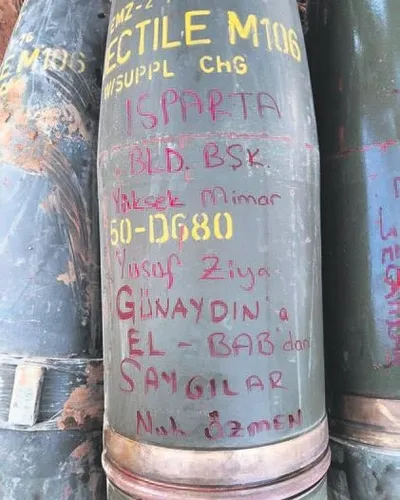 EMZ-2
ECTILE M106
W/SUPPL CHG
ISPARTA
BLD. BŞK.
Yüksek Mimar
50-D680
Yusuf Ziya
GÜNAYDIN'a
EL-BAB'dan
SAYGILAR
Nuh ÖZMEN
76
E M106